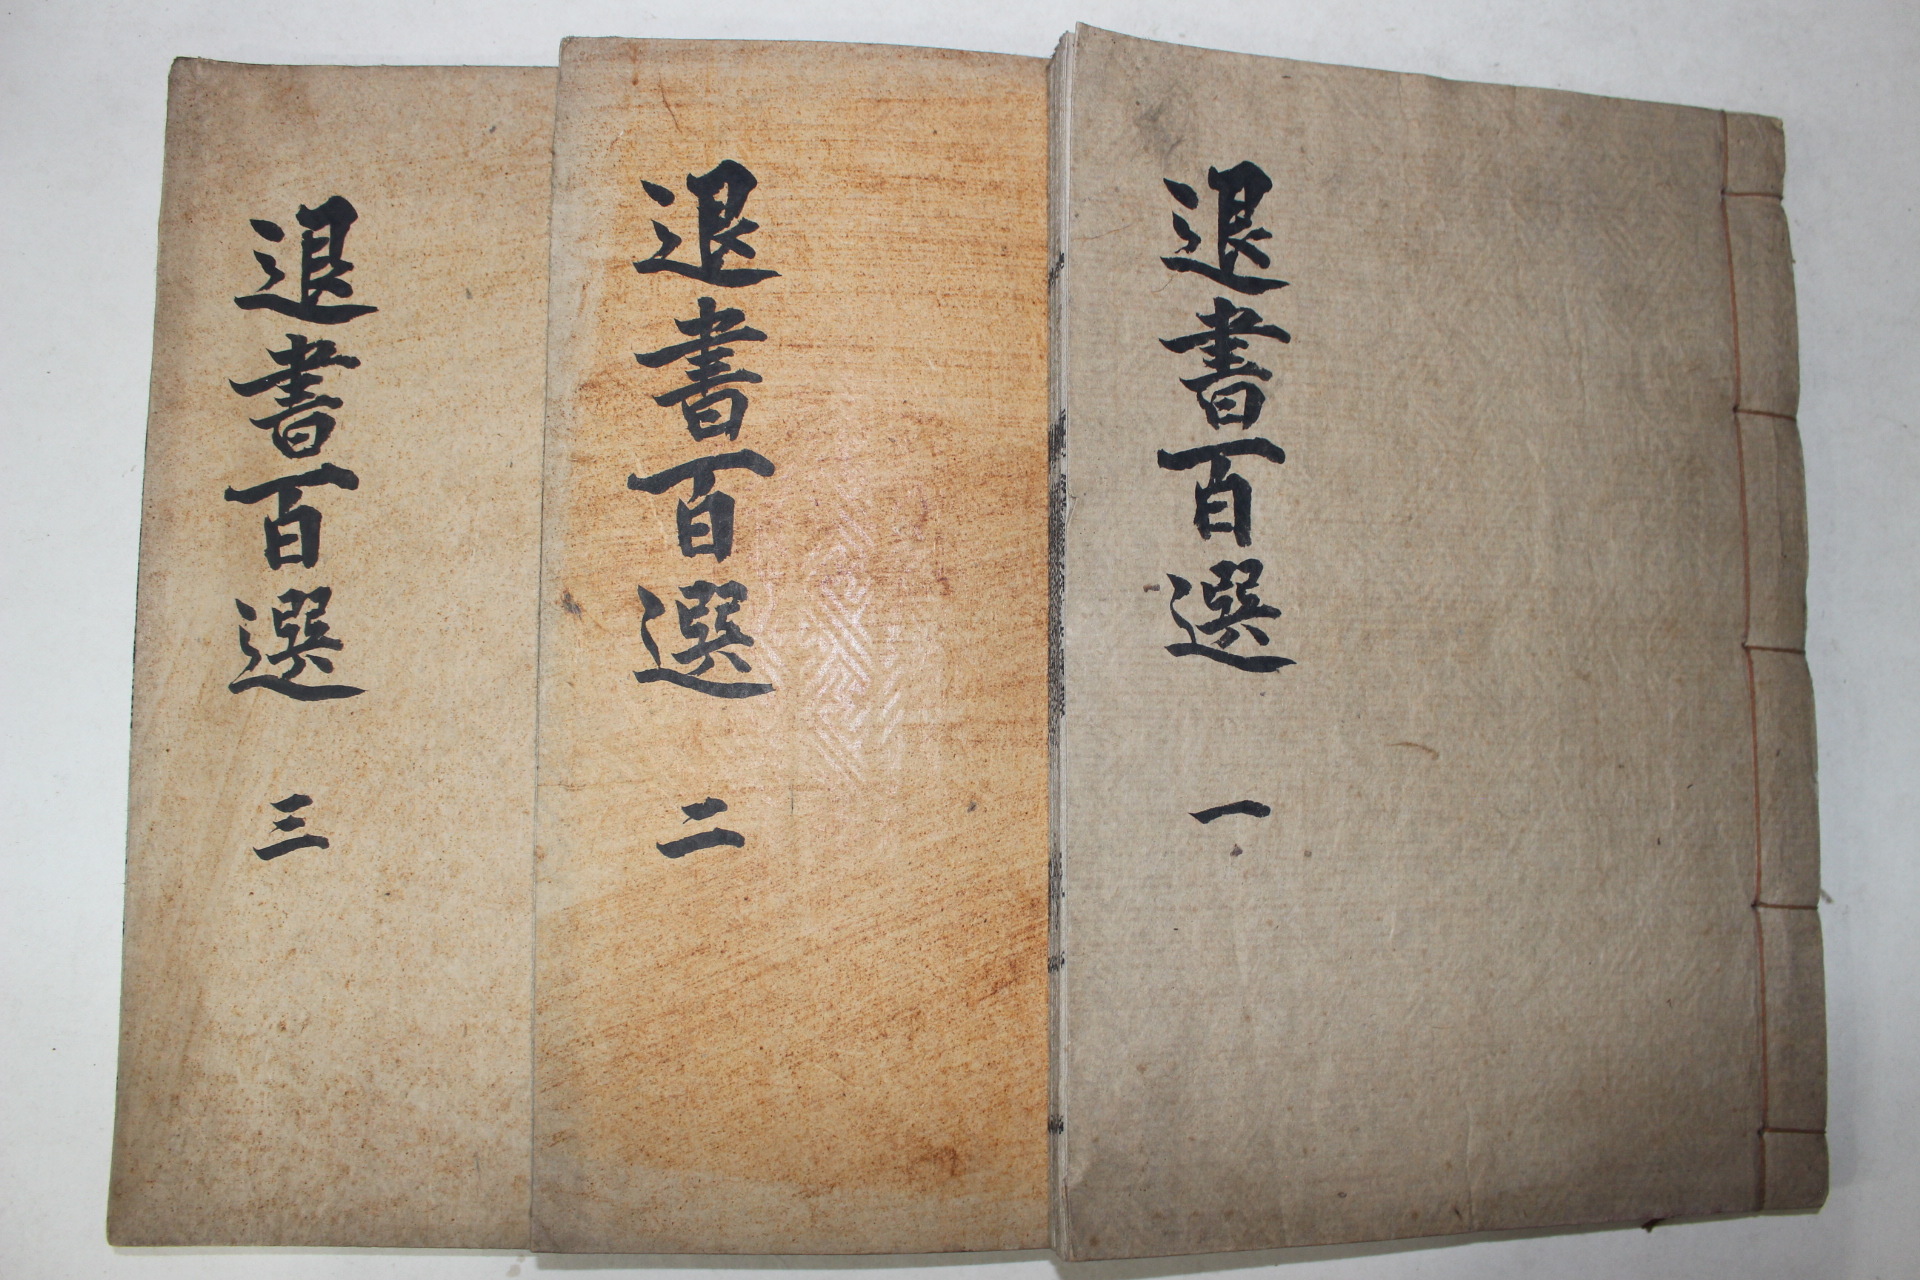 退書百選 一
退書百選 二
退書百選 三